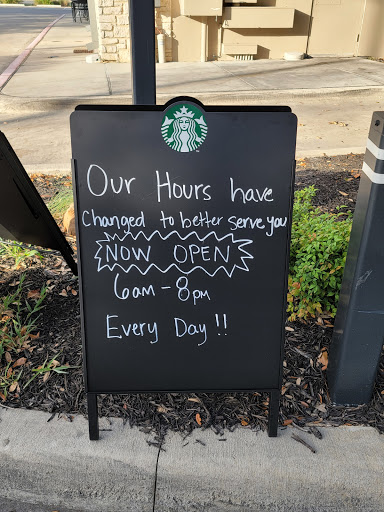 Our Hours have
Changed to better serve you
NOW OPEN
6am - 8pm
Every Day!!